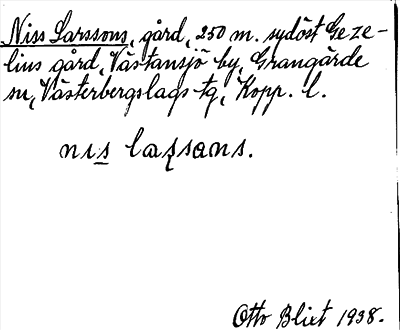 Niss Larssons, gård, 250 m. sydöst Geze-
lius gård, Västansjö by, Grangärde
sn, Västerbergslags tg, Kopp. l.
nıs laʂsans.
Otto Blixt 1938.